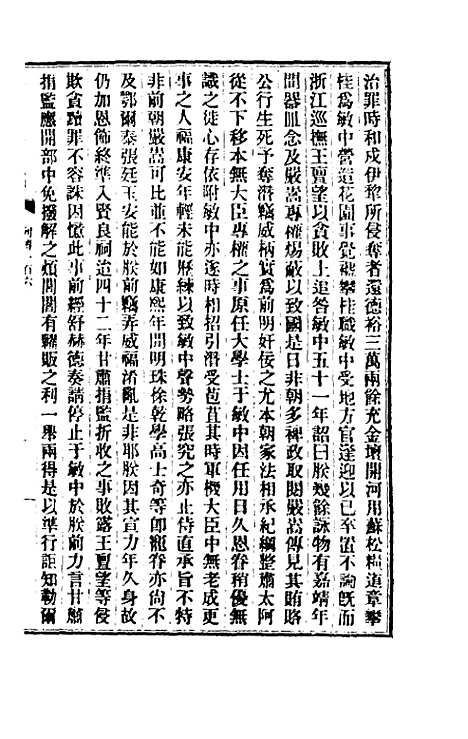 治罪時和成伊犂所侵奪者還德裕三萬兩餘充金壇開河用蘇松糧道章攀
桂爲敏中營造花園事覺褫攀桂職敏中受地方官逢迎以已卒置不詢旣而
浙江巡撫王亶望以貪敗上追咎敏中五十一年詔曰朕幾餘詠物有嘉靖年
間器皿念及嚴嵩專權煬蔽以致國是日非朝多稗政取閱嚴嵩傳見其賄賂
公行生死予奪潛竊威柄實爲前明奸佞之尤本朝家法相承紀綱整肅太阿
從不下移本無大臣專權之事原任大學士于敏中因任用日久恩眷稍優無
識之徒心存依附敏中亦遂時相招引潛受苞苴其時軍機大臣中無老成更
事之人福康安年輕未能歷練以致敏中聲勢略張究之亦止侍直承旨不特
非前朝嚴嵩可比並不能如康熙年間明珠徐乾學高士奇等卽寵眷亦尚不
及鄂爾泰張廷玉安能於朕前竊弄威福淆亂是非耶朕因其宣力年久身故
仍加恩飾終準入賢良祠迨四十二年甘肅捐監折收之事敗露王亶望等侵
欺貪黷罪不容誅因憶此事前經舒赫德奏請停止于敏中於朕前力言甘肅
捐監應開部中免撥解之煩閭閻有糶販之利一舉兩得是以準行詎知勒爾